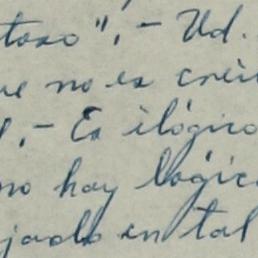 toso", - Ud.
ue no es creí
, - Es ilógico
no hay lógic
jado en tal